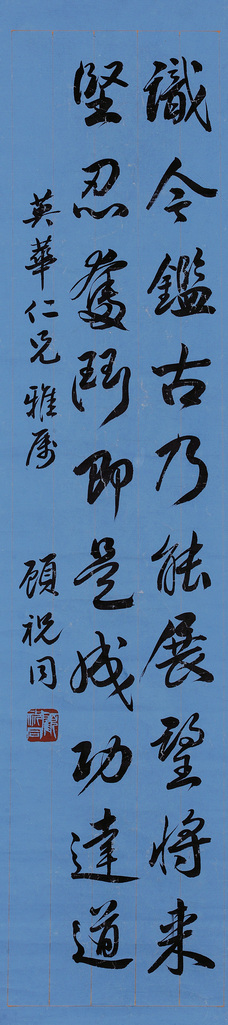 識今鑑古乃能展望將来
堅忍奮鬥即是成功達道
英華仁兄雅属
顧祝同